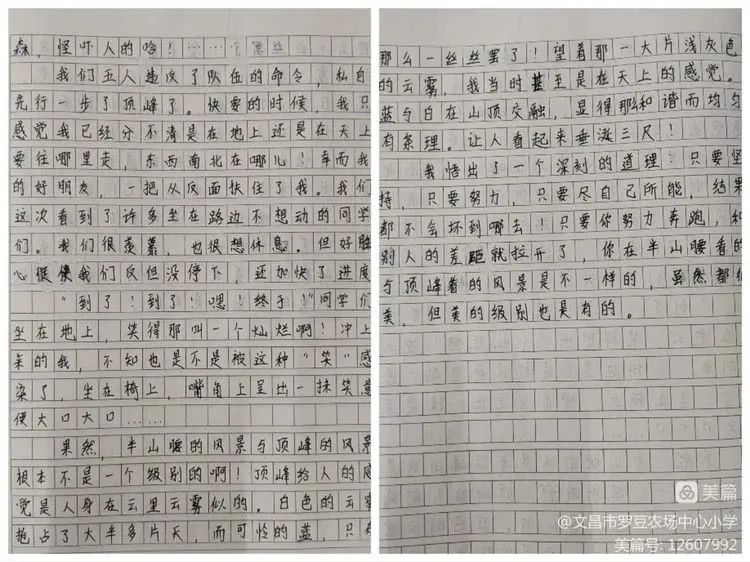 森，怪吓人的哈！……
我们五人违反了队伍的命令，私自
先行一步了顶峰了。快要的时候，我只
感觉我已经分不清是在地上还是在天上
要往哪里走，东西南北在哪儿！幸而我
的好朋友，一把从反面扶住了我。我们
这次看到了许多坐在路边不想动的同学
们。我们很羡慕，也很想休息。但好胜
心促使我们反但没停下，还加快了进度
“到了！到了！嗯！终于！”同学们
坐在地上，笑得那叫一个灿烂啊！冲上
来的我，不知也是不是被这种“笑”感
染了，坐在椅上，嘴角上呈出一抹笑意
便大口大口……
果然，半山腰的风景与顶峰的风景
根本不是一个级别的啊！顶峰给人的感
觉是人身在云里云雾似的。白色的云雾
抢占了大半多片天，而可怜的蓝，只有
那么一丝丝罢了！望着那一大片浅灰色
的云雾，我当时甚至是在天上的感觉。
蓝与白在山顶交融，显得那么和谐而均匀
有条理。让人看起来垂涎三尺！
我悟出了一个深刻的道理：只要坚
持，只要努力，只要尽自己所能，结果
都不会坏到哪去！只要你努力奔跑，和
别人的差距就拉开了，你在半山腰看的
与顶峰看的风景是不一样的，虽然都但
美，但美的级别也是有的。
美篇
@文昌市罗豆农场中心小学
美篇号: 12607992